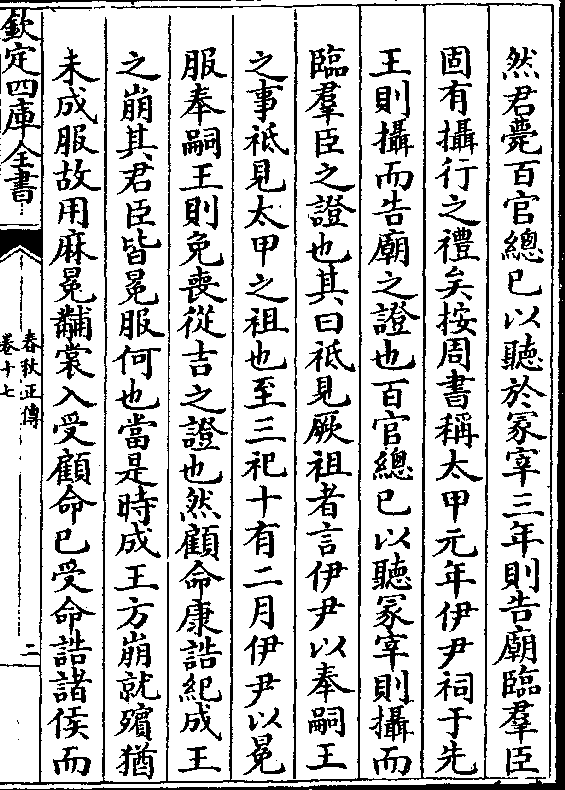 然君薨百官總已以聽於冢宰三年則告廟臨羣臣
固有攝行之禮矣按周書稱太甲元年伊尹祠于先
王則攝而告廟之證也百官總已以聽冢宰則攝而
臨羣臣之證也其曰祗見厥祖者言伊尹以奉嗣王
之事祗見太甲之祖也至三祀十有二月伊尹以冕
服奉嗣王則免喪從吉之證也然顧命康誥紀成王
之崩其君臣皆冕服何也當是時成王方崩就殯猶
未成服故用麻冕黼裳入受顧命已受命誥諸侯而
欽定四庫全書
春秋正傳
卷十七
二